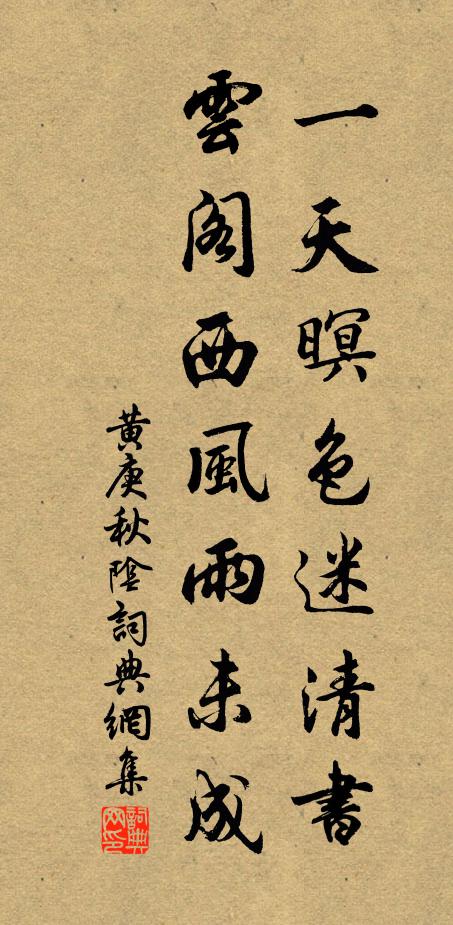 一天暝色迷清書
雲閣西風雨未成
黃庚秋陰詞典網集
詞典網印